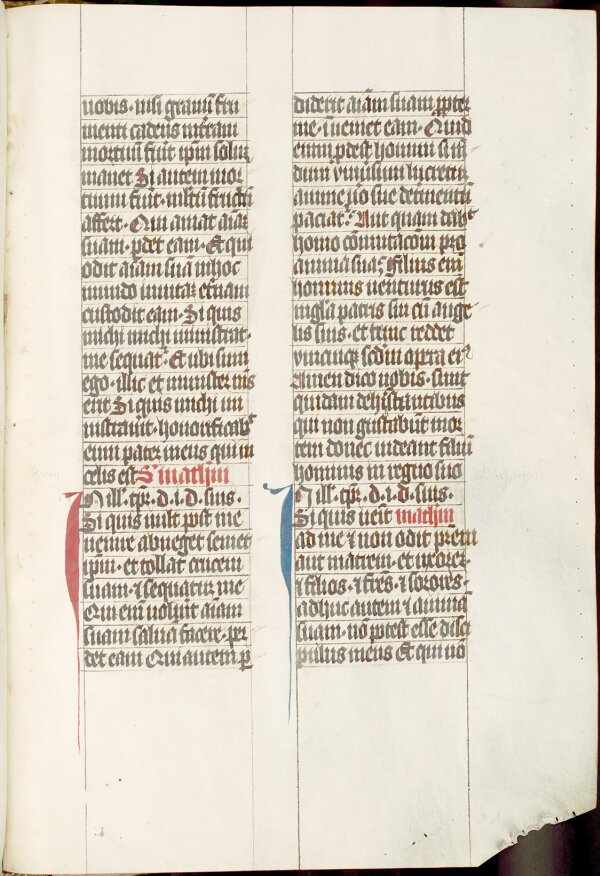 uobis· nisi granū fru
menti cadens in t̄ram
mortuū fu͛it ip̄m solū
manet Si autem mor
tuum fu͛it· multū fructū
affert· Qui amat aīaꝫ
suam· ꝑdet eam· Et qui
odit aīam suā in hoc
mundo in uitaꝫ et͛nam
custodit eam· Si quis
michi michi ministrat·
me sequat᷑· Et ubi sum
ego· illic et minister m͛s
erit Si quis michi mi
nistrauit· honorificab᷑
eum pater meus qui in
celis est S mathm
N ill᷑· tꝑr· d· i· d· suis·
Si quis uult post me
uenire abneget semet
ip̄m· et tollat crucem
suam· ⁊ sequatur me
Qui em̄ uolu͛it aīam
suam saluā facere· ꝑ
det eam Qui autem ꝑ
diderit aīam suam ꝓpter
me· īueniet eam· Quid
enim ꝓdest homini si mū
dum vniu͛sum lucretur
anime u͛o sue detrimentū
paciat᷑· Aut quam dab᷑
homo cōmutacōem pro
anima sua· Filius em̄
hominis uenturus est
in gl̄a patris sui cū ange
lis suis· et tunc reddet
vnicuiqꝫ scd̄m opera eiꝰ
Amen dico uobis· sunt
quidam de hic stantibus
qui non gustabūt mor
tem donec uideant filiū
hominis in regno suo
N ill᷑· tꝑr· d· i· d· suis·
Si quis uen̄it mathm
ad me ⁊ non odit prem̄
aut matrem· et uxoreꝫ
⁊ filios· ⁊ fr̄es· ⁊ sorores·
adhuc autem ⁊ animā
suam· nō potest esse disci
pulus meus Et qui nō